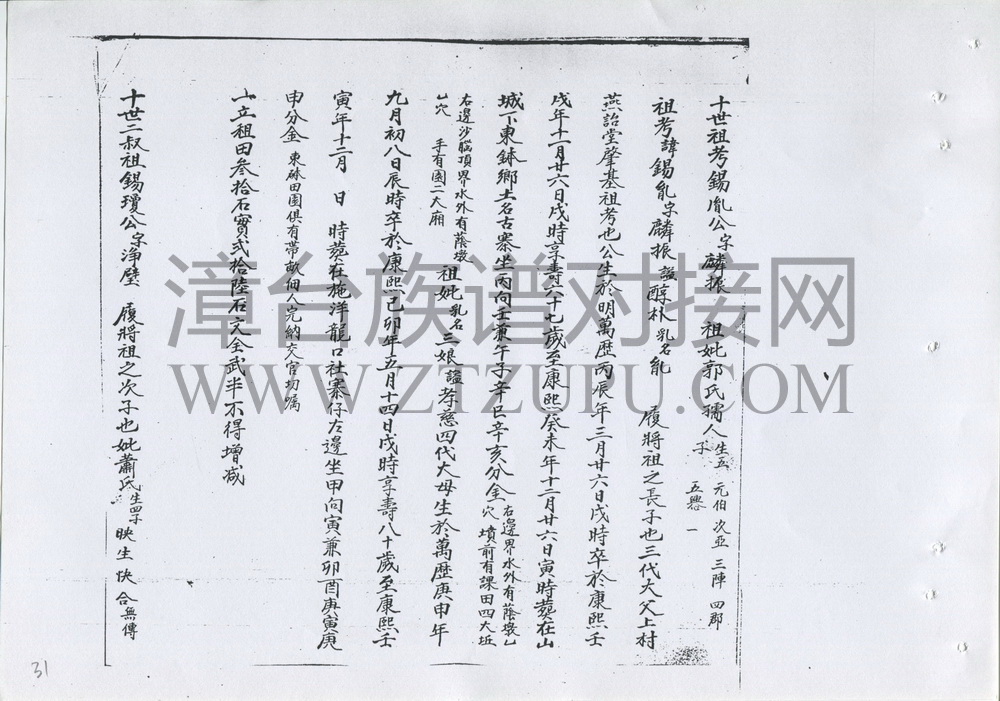 十世祖考錫胤公字麟振 祖妣郭氏孺人生五子 元伯 次亞 三陣 四郡 五舉 一
祖考諱錫胤字麟振諡醇林乳名胤 履將祖之長子也三代大父上村
燕詒堂肇基祖考也公生於明萬歷丙辰年三月廿六日戌時卒於康熙壬
戌年十一月廿六日戌時享壽六十七歲至康熙癸未年十二月廿六日寅時葬在山
城下東缽鄉土名古寨坐丙向壬兼午子辛巳辛亥分金穴右邊界水外有蔭墩乙 墳前有課田四大坵
右邊沙腦頂界水外有蔭墩 山穴 手有園二大廂 祖妣乳名三娘諡孝慈四代大母生於萬歷庚申年
九月初八日辰時卒於康熙己卯年五月十四日戌時享壽八十歲至康熙壬
寅年十二月 日 時葬在施洋龍口社寨仔右邊坐甲向寅兼卯酉庚寅庚
申分金 東缽田園俱有帶畝佃人完納交官切囑
一立祖田叁拾石實弍拾陸石文全武半不得增减
十世二叔祖錫瓊公字淨璧 履將祖之次子也妣蕭氏生四子 映生 快 合無傳
31
漳台族谱对接网
WWW.ZTZUPU.COM